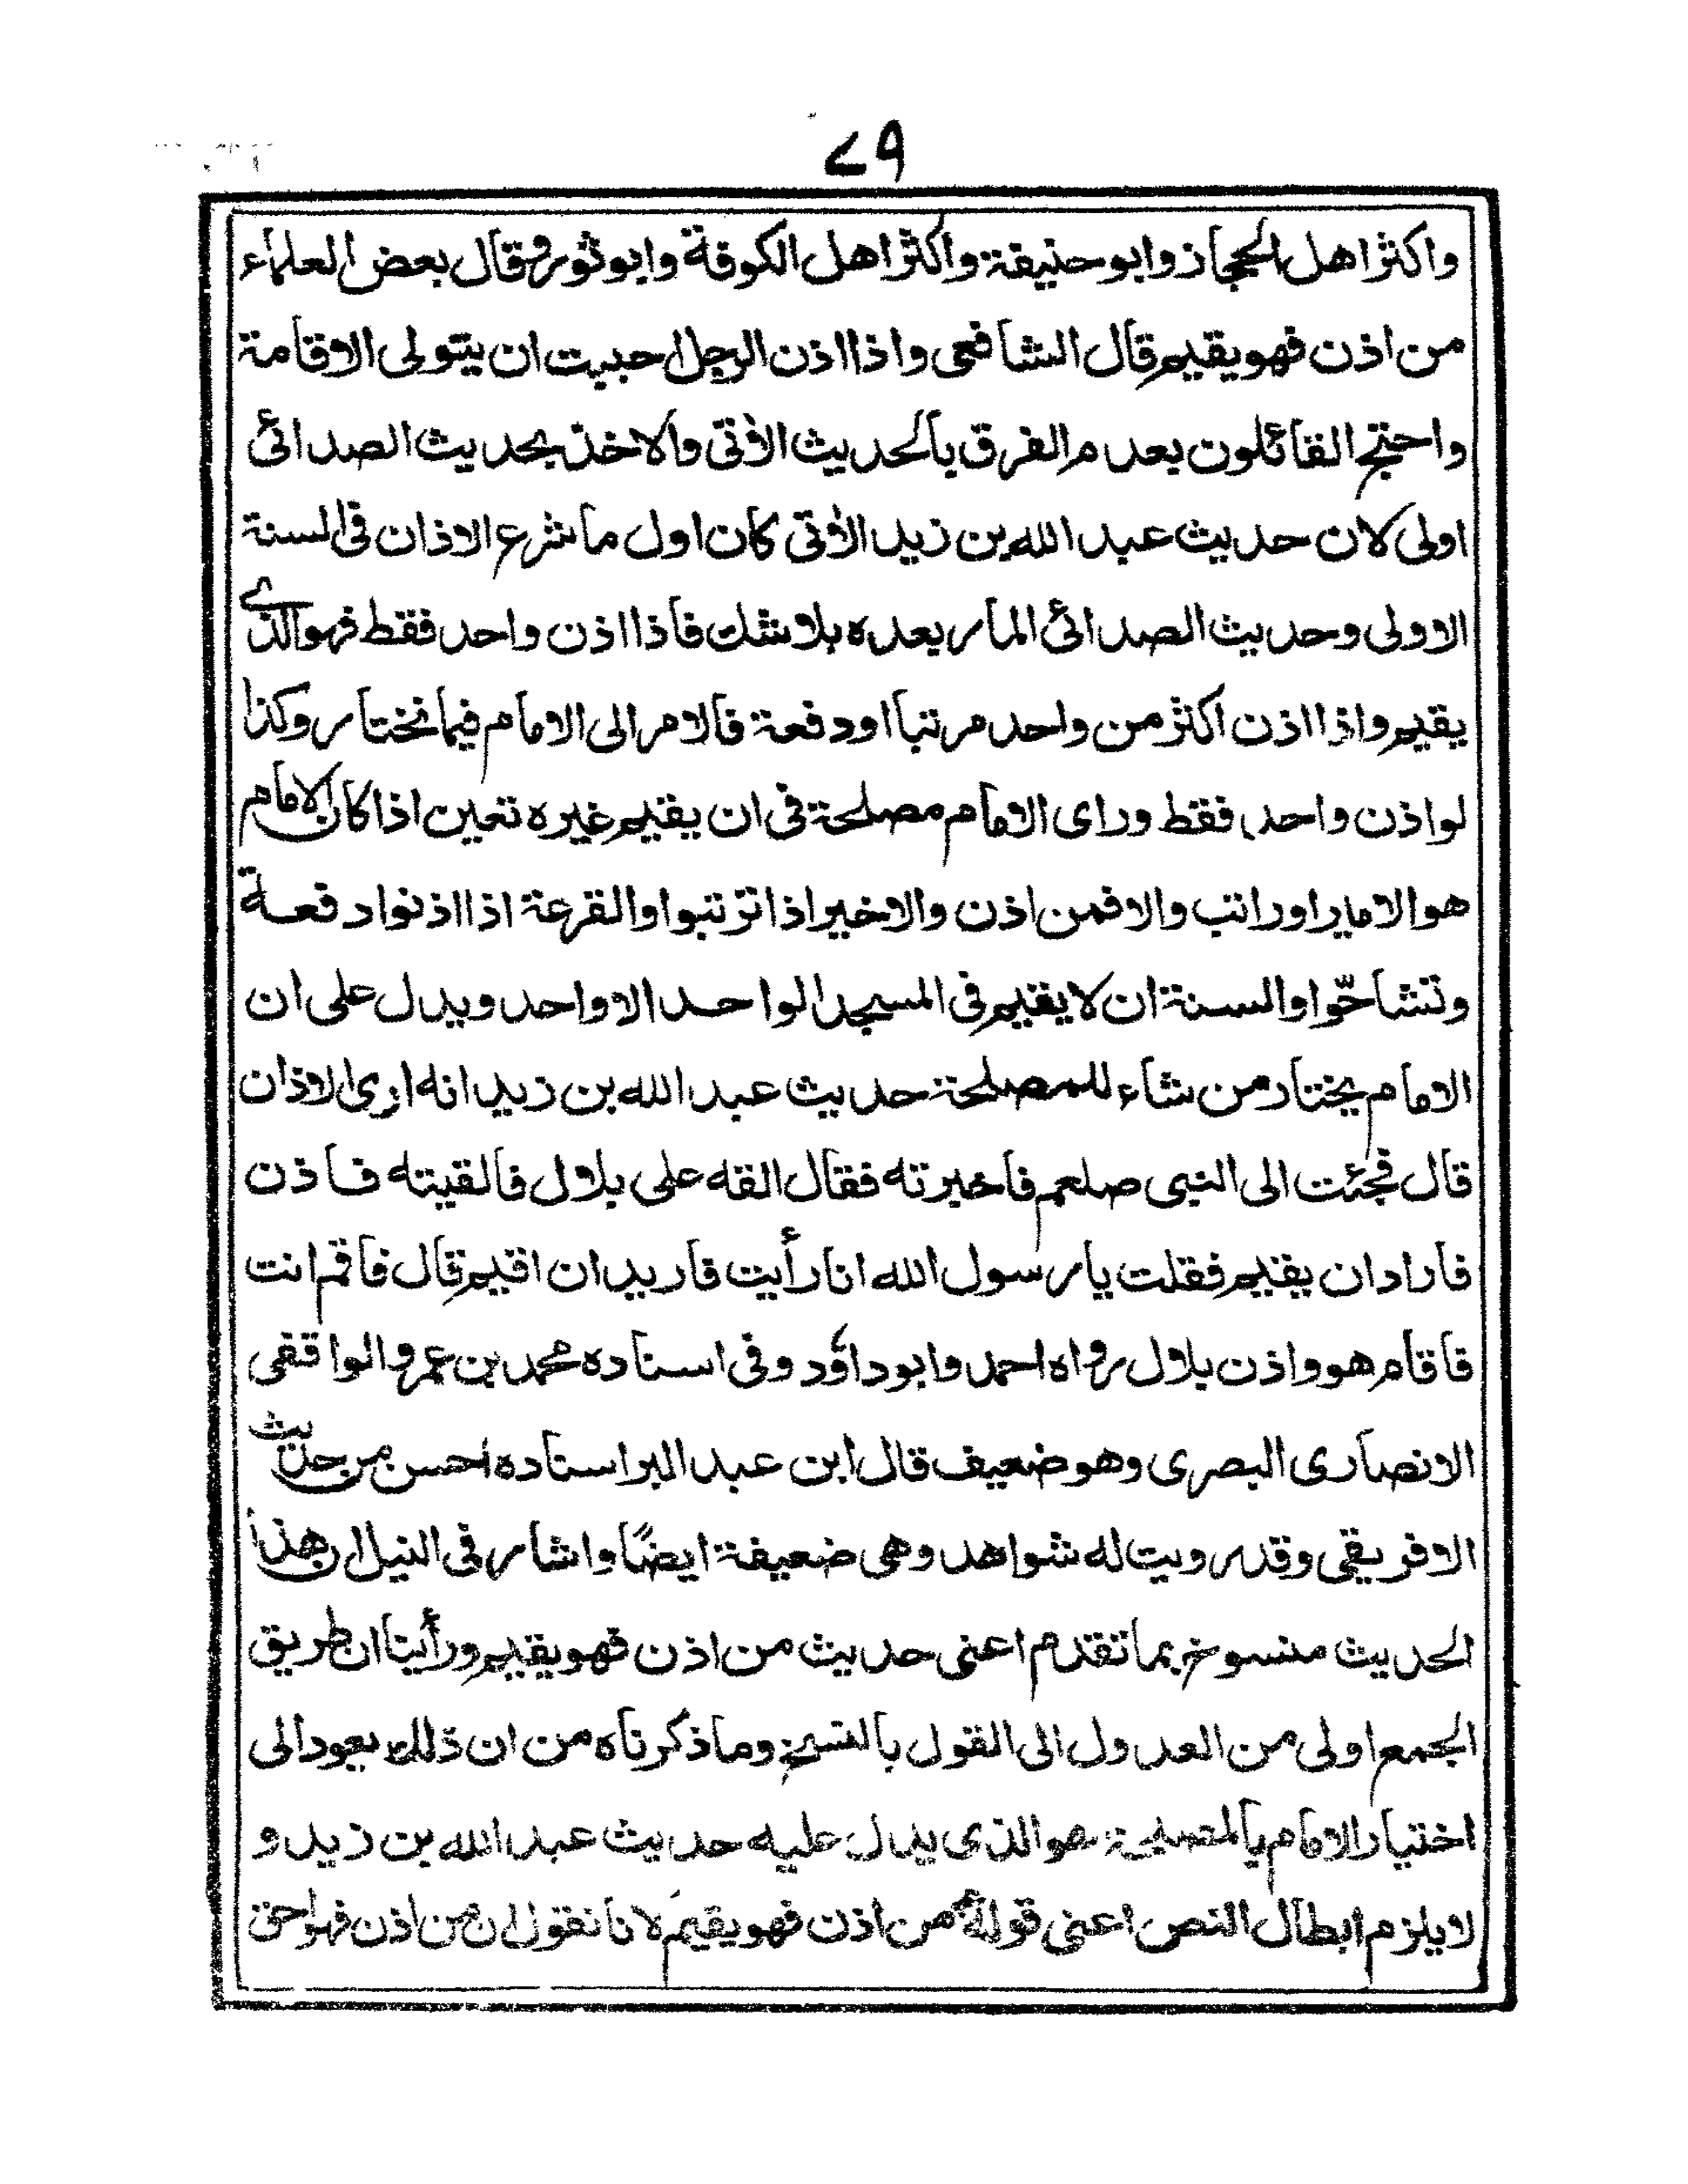 ٧٩
واكثر اهل الحجاز وابو حنيفة واكثر اهل الكوفة وابو ثور وقال بعض العلماء
من اذن فهو يقيم قال الشافعى واذا اذن الرجل احببت ان يتولى الاقامة
واحتج القائلون بعدم الفرق بالحديث الأتى والاخذ بحديث الصدائى
اولى لان حديث عبد الله بن زيد الأتى كان اول ما شرع الاذان فى السنة
الاولى وحديث الصدائى المار بعده بلا شك فاذا اذن واحد فقط فهو الذى
يقيم واذا اذن اكثر من واحد مرتبا او دفعة فالامر الى الامام فيما نختار وكذا
لو اذن واحد فقط وراى الامام مصلحة فى ان يقيم غيره تعين اذا كان الامام
هو الامير او راتب والا فمن اذن والاخير اذا ترتبوا والقرعة اذا اذنوا دفعة
وتشاحّوا والسنة ان لا يقيم فى المسجد الواحد الا واحد ويدل على ان
الامام يختار من شاء للمصلحة حديث عبد الله بن زيد انه ارى الاذان
قال فجئت الى النبى صلعم فاخبرته فقال القه على بلال فالقيته فاذن
فاراد ان يقيم فقلت يا رسول الله انا رأيت فاريد ان اقيم قال فاقم انت
فاقام هو واذن بلال رواه احمد وابو داؤد وفى اسناده محمد بن عمرو الواقفى
الانصارى البصرى وهو ضعيف قال ابن عبد البر اسناده احسن من حديث
الافريقى وقد رويت له شواهد وهى ضعيفة ايضًا واشار فى النيل ان هذا
الحديث منسوخ بما تقدم اعنى حديث من اذن فهو يقيم ورأينا ان طريق
الجمع اولى من العدول الى القول بالنسخ وما ذكرناه من ان ذلك يعود الى
اختيار الامام بالمصلحة هو الذى يدل عليه حديث عبد الله بن زيد و
لا يلزم ابطال النص اعنى قوله من اذن فهو يقيم لانا نقول ان من اذن فهو احق